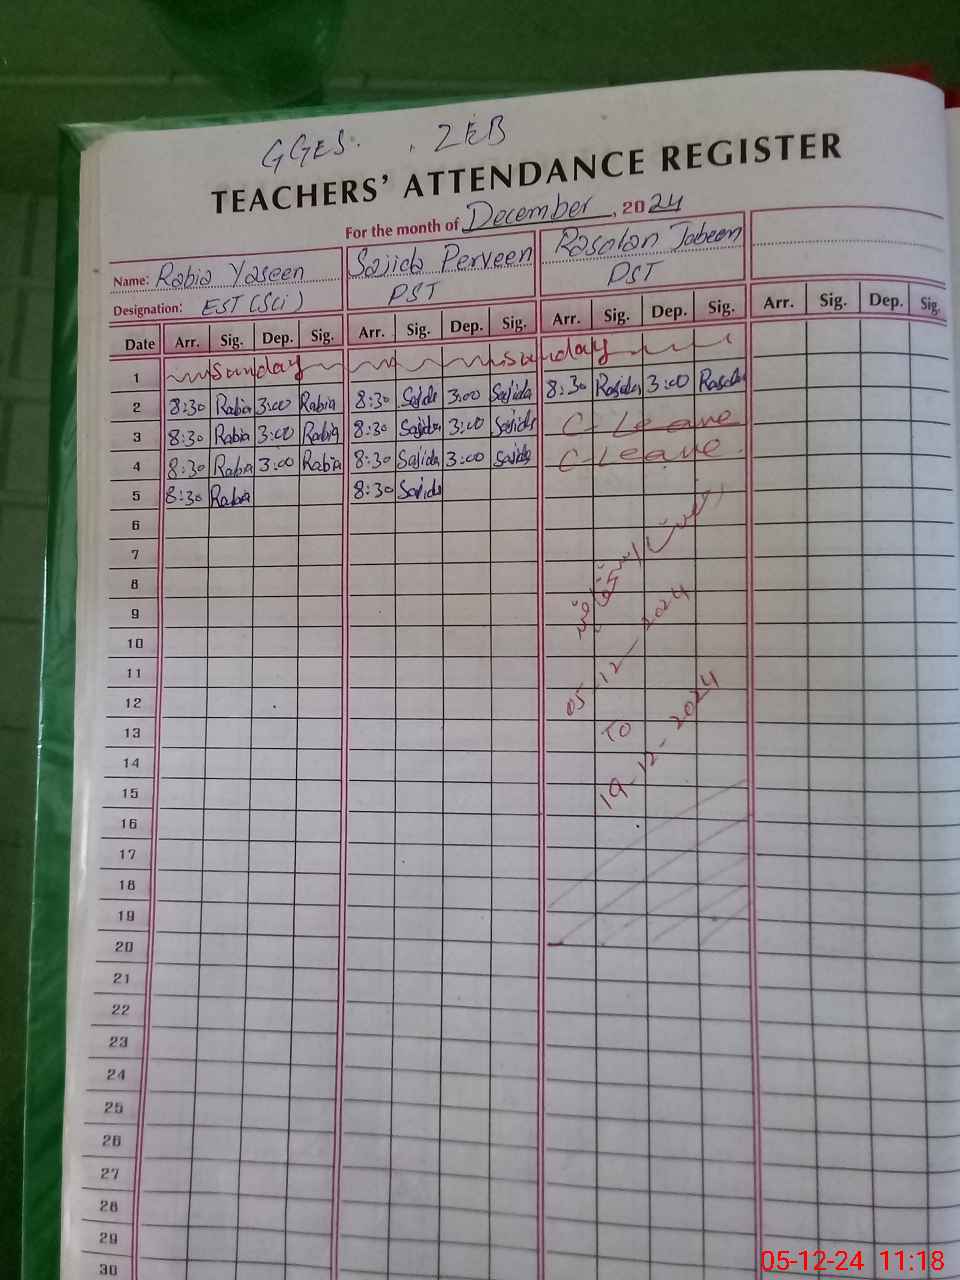 GGES. ZEB
TEACHERS' ATTENDANCE REGISTER
For the month of December, 2024
Name: Rabia Yaseen Sajida Perveen Jabeen
Designation: EST (Sci) PST PST
Date Arr. Sig. Dep. Sig. Arr. Sig. Dep. Sig. Arr. Sig. Dep. Sig. Arr. Sig. Dep. Sig.
1 Sunday Sunday
2 8:30 Rabia 3:00 Rabia 8:30 Sajida 3:00 Sajida 8:30 3:00
3 8:30 Rabia 3:00 Rabia 8:30 Sajida 3:00 Sajida C-Leave
4 8:30 Rabia 3:00 Rabia 8:30 Sajida 3:00 Sajida C-Leave
5 8:30 Rabia 8:30 Sajida
6
7
8
9
10
11
12
13
14
15
16
17
18
19
20
21
22
23
24
25
26
27
28
29
30
05-12-2024
TO
19-12-2024
05-12-24 11:18